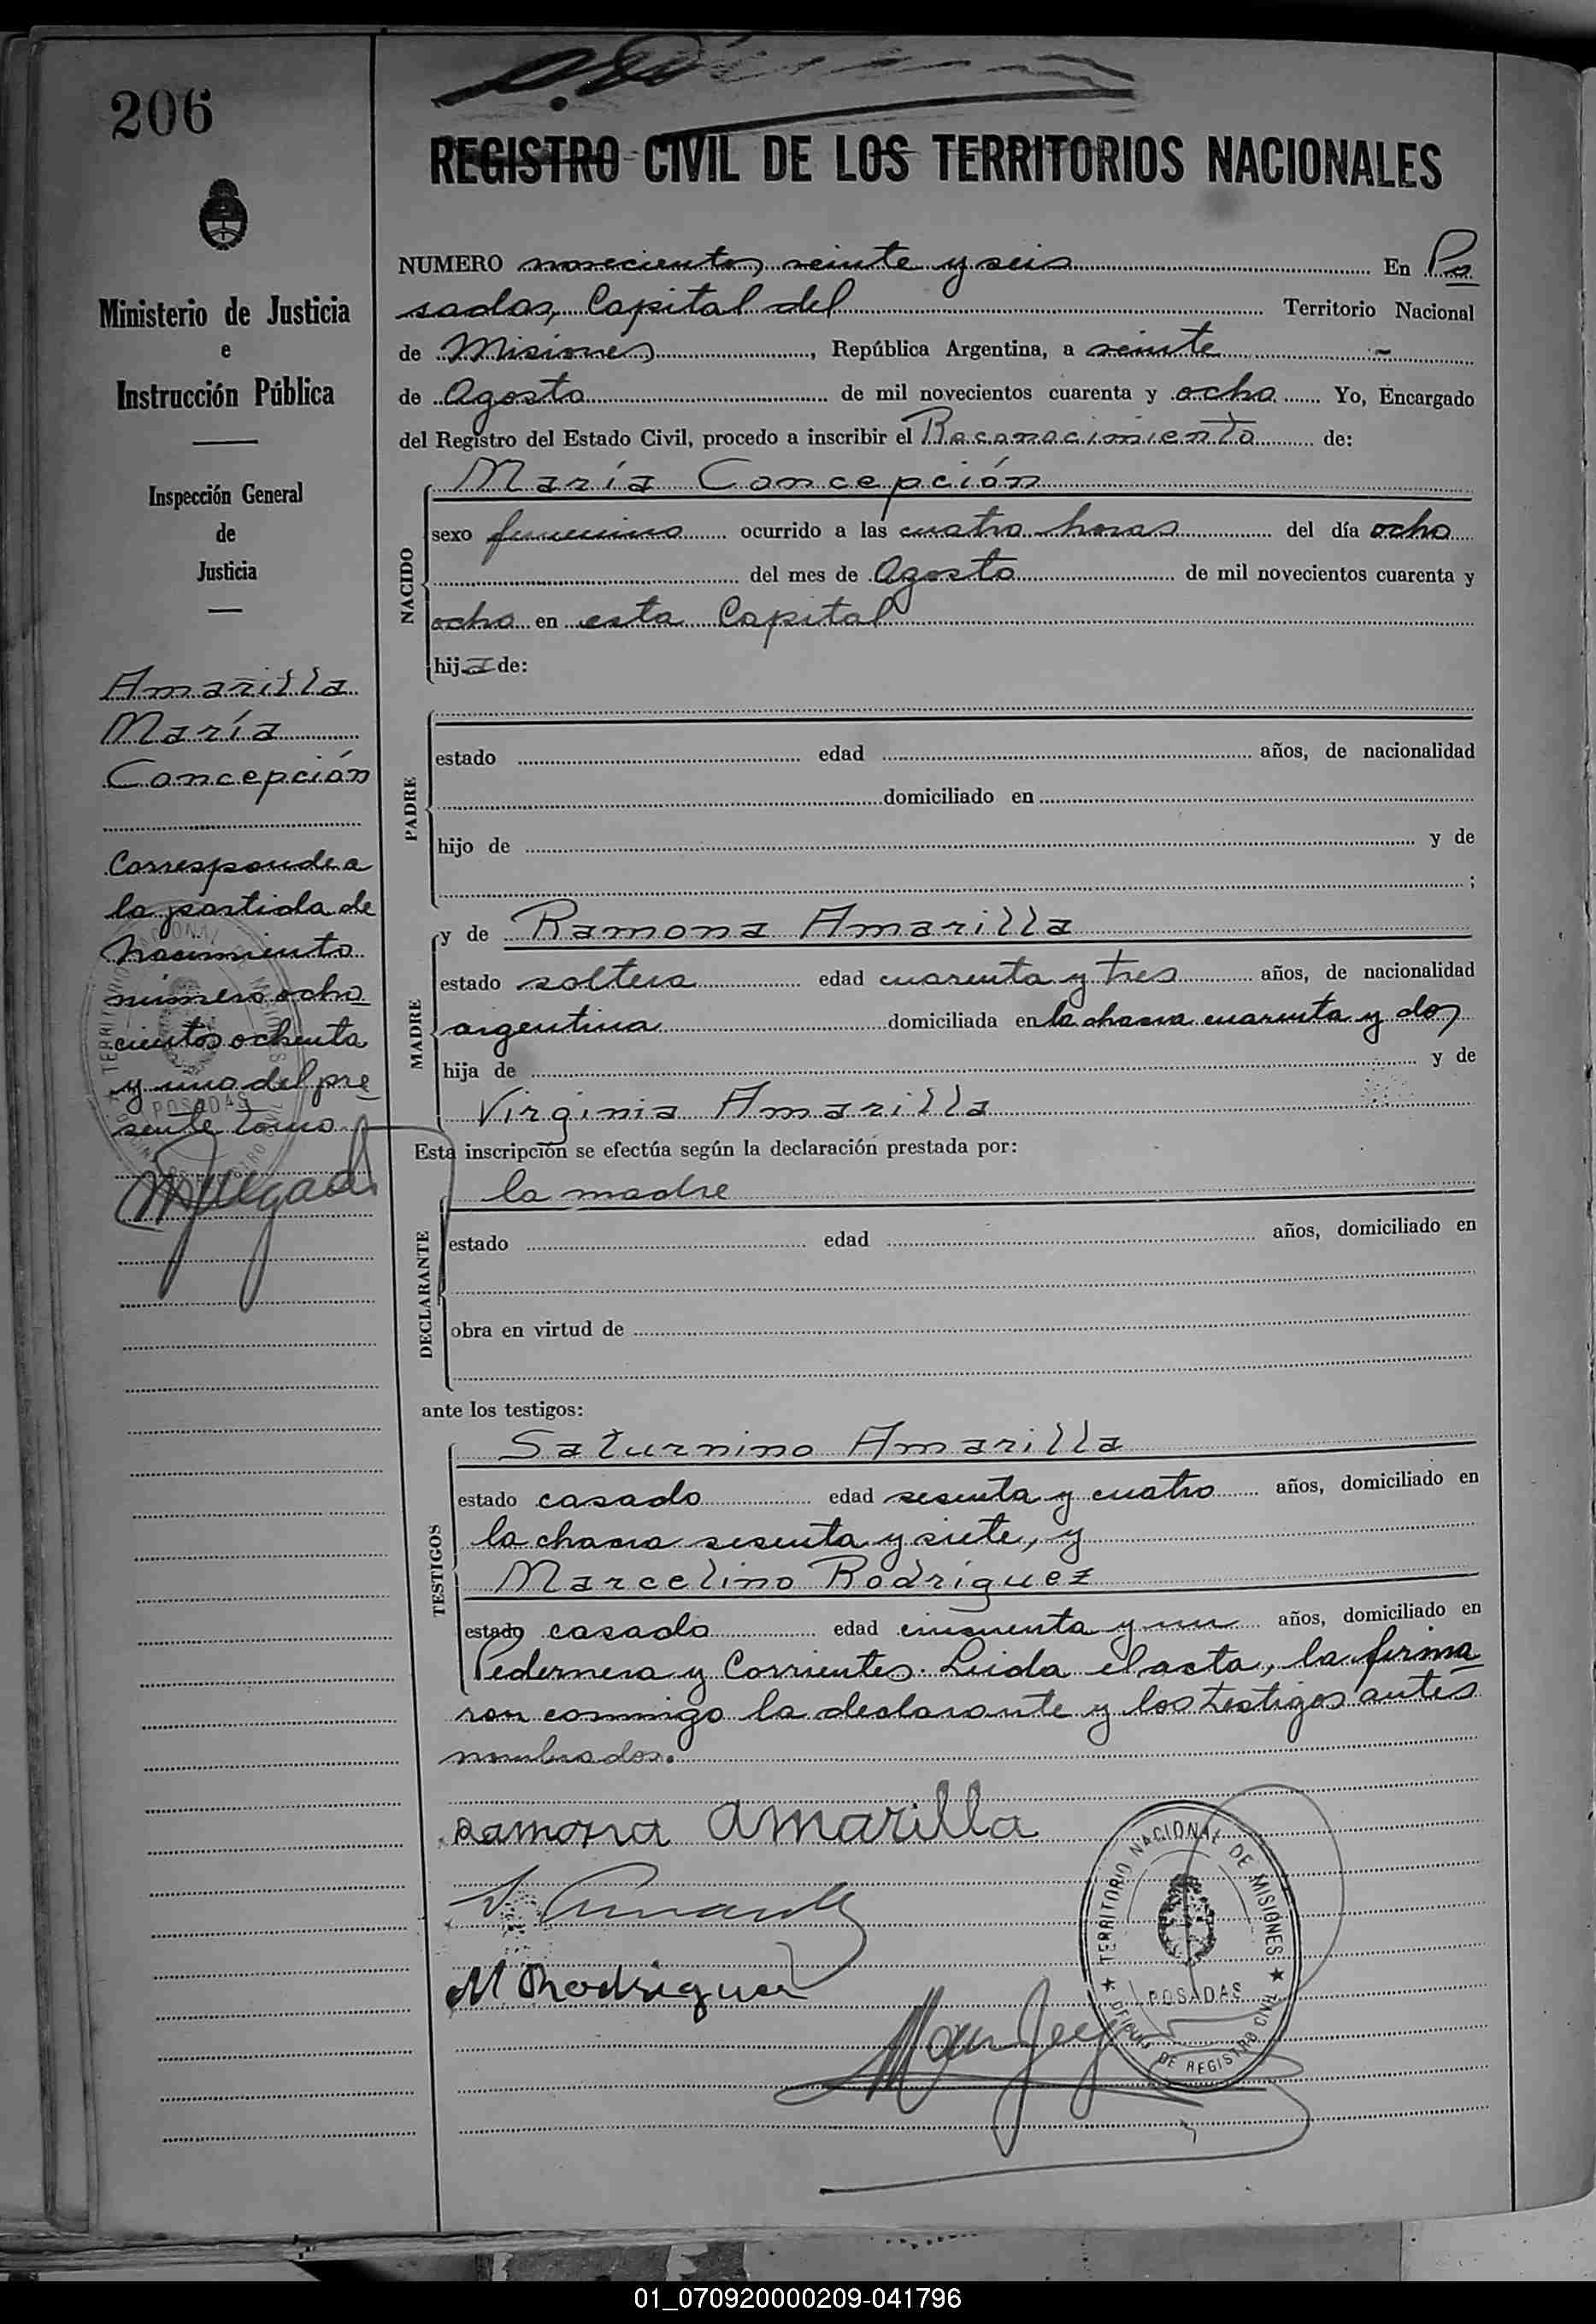 206
REGISTRO CIVIL DE LOS TERRITORIOS NACIONALES
Ministerio de Justicia
e
Instrucción Pública
Inspección General
de
Justicia
Amarilla
María
Concepción
Corresponde a
la partida de
Nacimiento
número ocho
cientos ochenta
y uno del pre
sente tomo
NUMERO novecientos veinte y seis En Po
sadas, Capital del Territorio Nacional
de Misiones, República Argentina, a veinte
de Agosto de mil novecientos cuarenta y ocho Yo, Encargado
del Registro del Estado Civil, procedo a inscribir el Reconocimiento de:
NACIDO
María Concepción
sexo femenino ocurrido a las cuatro horas del día ocho
del mes de Agosto de mil novecientos cuarenta y
ocho en esta Capital
hija de:
PADRE
estado edad años, de nacionalidad
domiciliado en
hijo de y de
;
MADRE
y de Ramona Amarilla
estado soltera edad cuarenta y tres años, de nacionalidad
argentina domiciliada en la chacra cuarenta y dos
hija de y de
Virginia Amarilla
Esta inscripción se efectúa según la declaración prestada por:
DECLARANTE
la madre
estado edad años, domiciliado en
obra en virtud de
ante los testigos:
TESTIGOS
Saturnino Amarilla
estado casado edad sesenta y cuatro años, domiciliado en
la chacra sesenta y siete, y
Marcelino Rodriguez
estado casado edad cincuenta y un años, domiciliado en
Pedernera y Corrientes. Leida el acta, la firma
ron conmigo la declarante y los testigos antes
nombrados.
Ramona Amarilla
M Rhodriguez
TERRITORIO NACIONAL DE MISIONES
POSADAS
OFICINA DE REGISTRO CIVIL
01_070920000209-041796